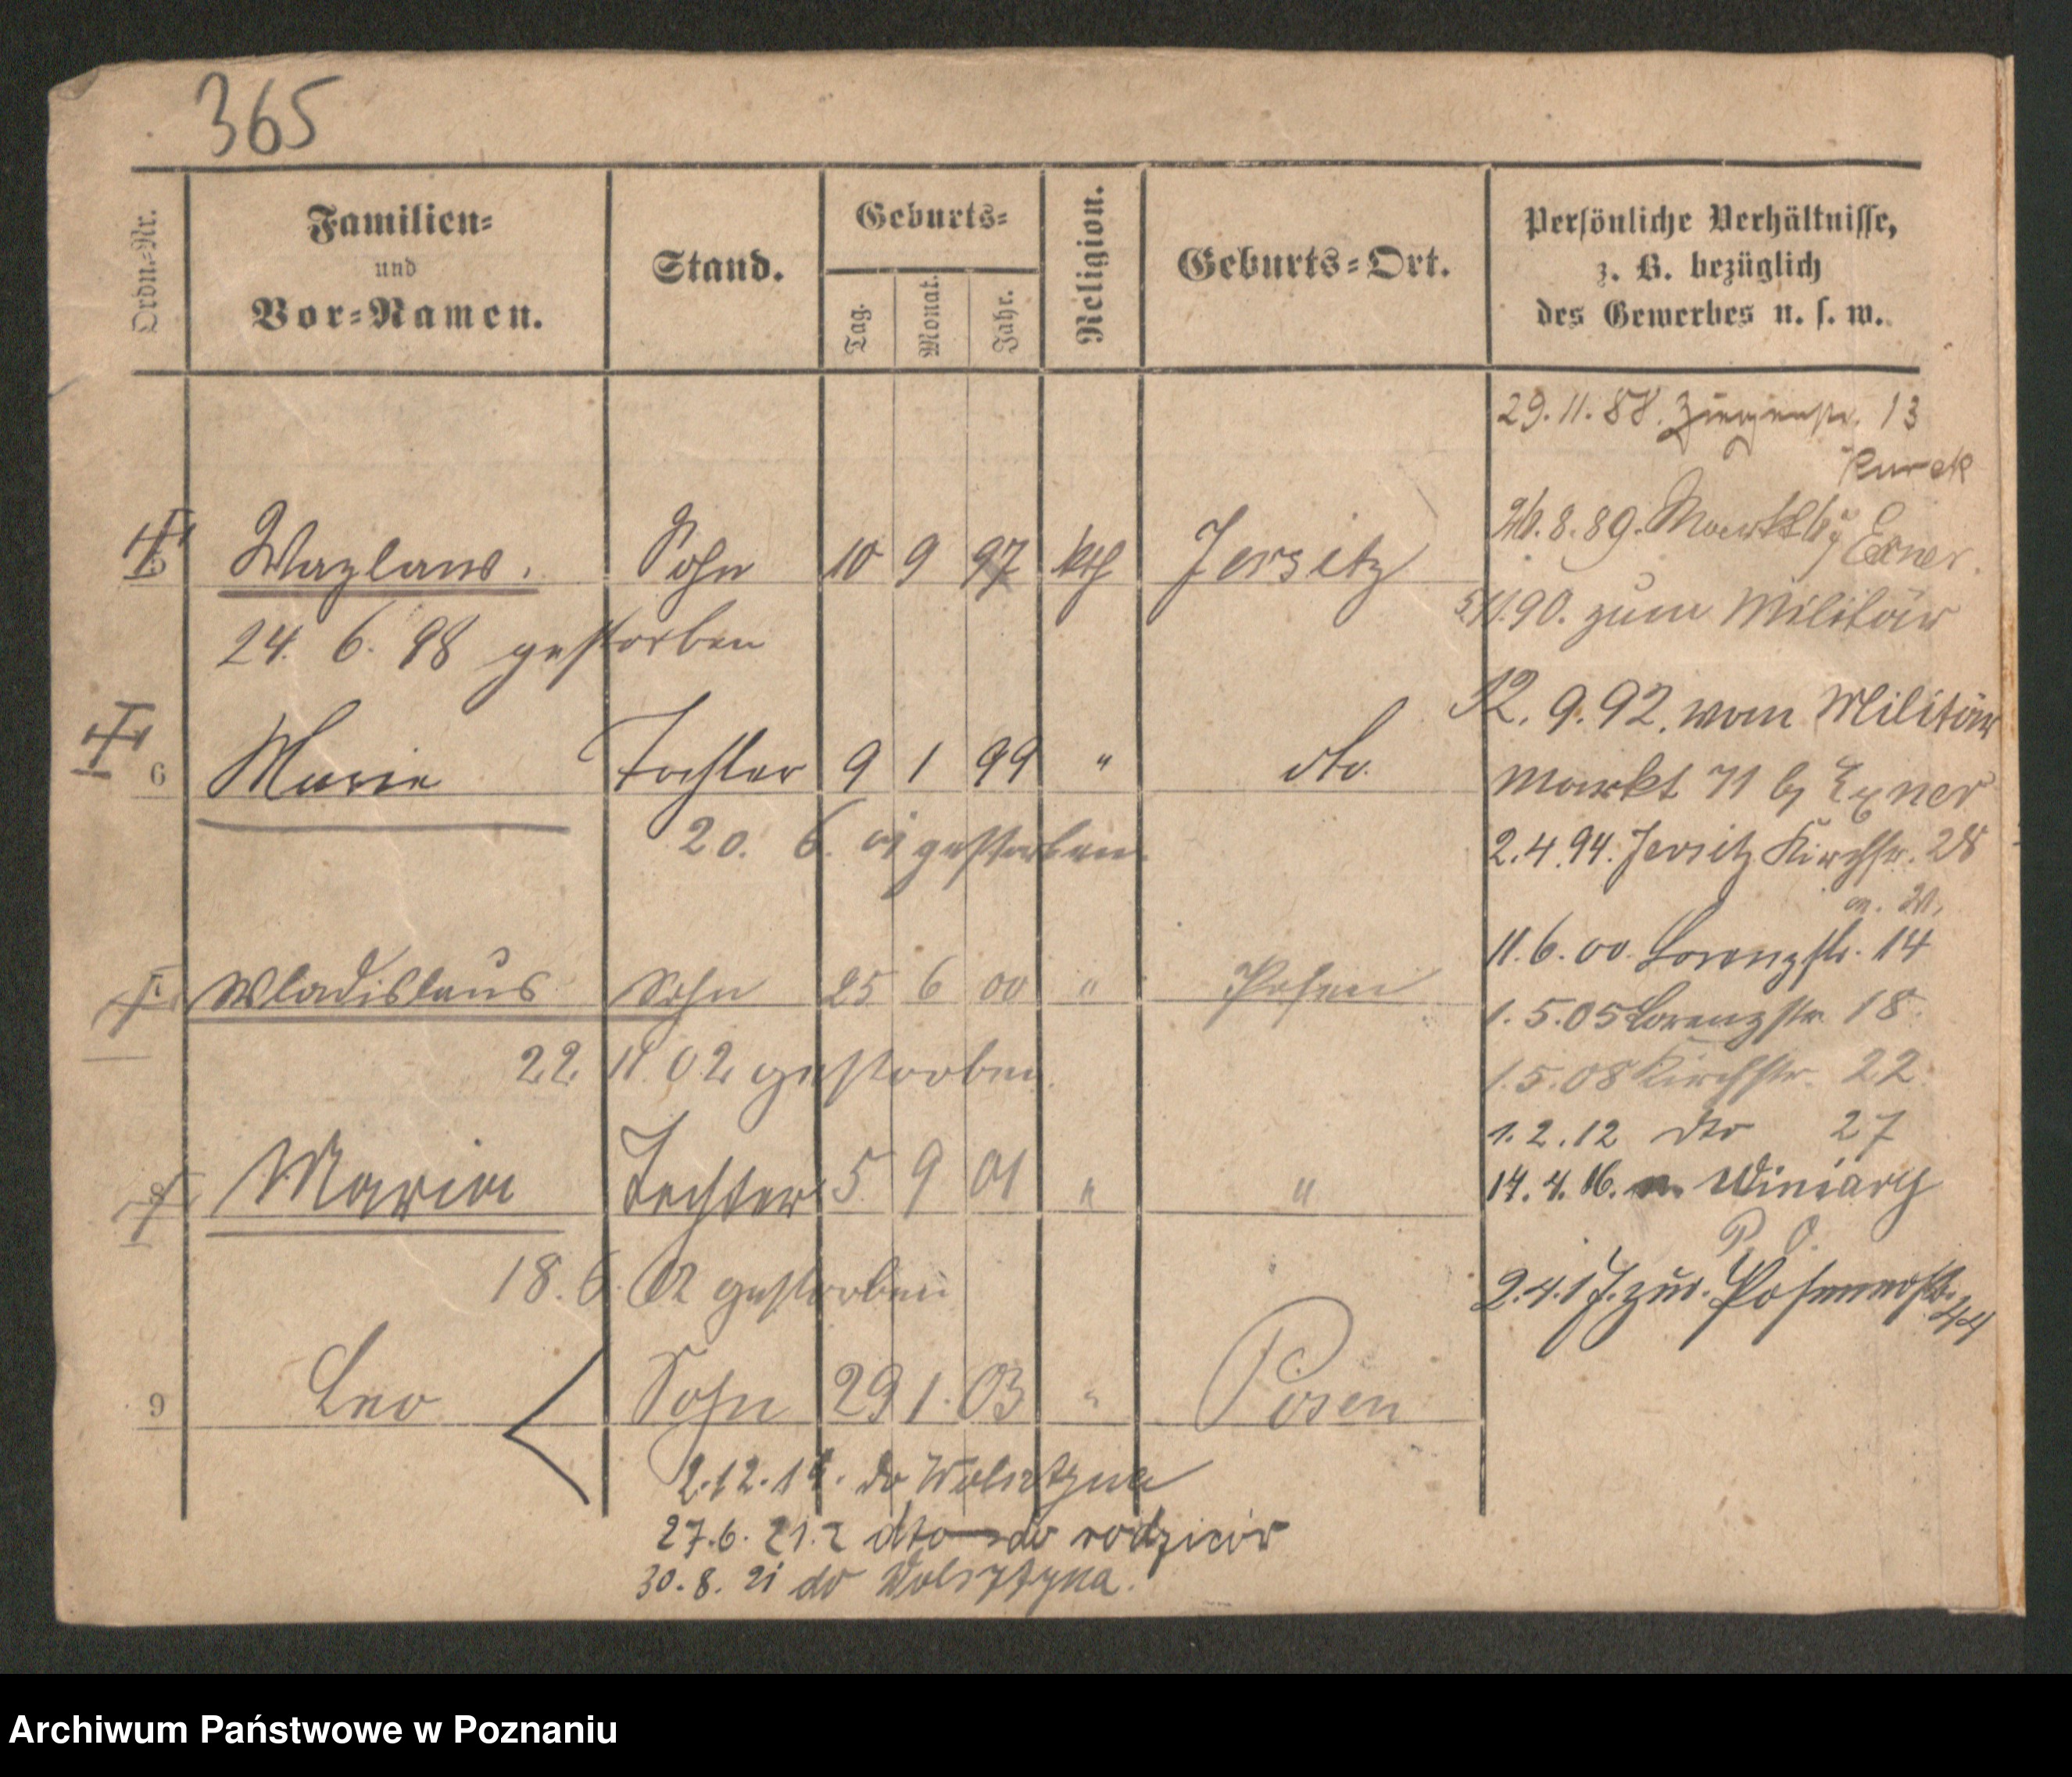 365
Ordn.-Nr.
Familien-
und
Vor-Namen.
Stand.
Geburts-
Tag.
Monat.
Jahr.
Religion.
Geburts-Ort.
Persönliche Verhältnisse,
z. B. bezüglich
des Gewerbes u. s. w.
29.11.88. Ziegenstr. 13
Kurek
5 Wazlaus. Sohn 10 9 97 kth Jersitz
8.89. Markt bj Exner.
24. 6. 98 gestorben
11.90. zum Militär
12. 9. 92. vom Militär
6 Marie Tochter 9 1 99 " dto.
Markt 71 bj Exner
20. 6. 01 gestorben
2.4.94. Jersitz Kirchstr. 28
11.6.00. Lorenzstr. 14
Wladislaus Sohn 25 6 00 " Posen
1.5.05 Lorenzstr. 18
22. 11. 02 gestorben
1.5.08 Kirchstr. 22
1.2.12 dto 27
Maria Tochter 5 9 01 " "
14.4.16. n. Winiary
P. O.
18. 6. 02 gestorben
2.4.17. zur. Posenerstr. 44
9 Leo Sohn 29 1. 03 " Posen
2.12.1 do Wolsztyna
27.6.21. z dto do rodziców
30.8.21 do Wolsztyna.
Archiwum Państwowe w Poznaniu